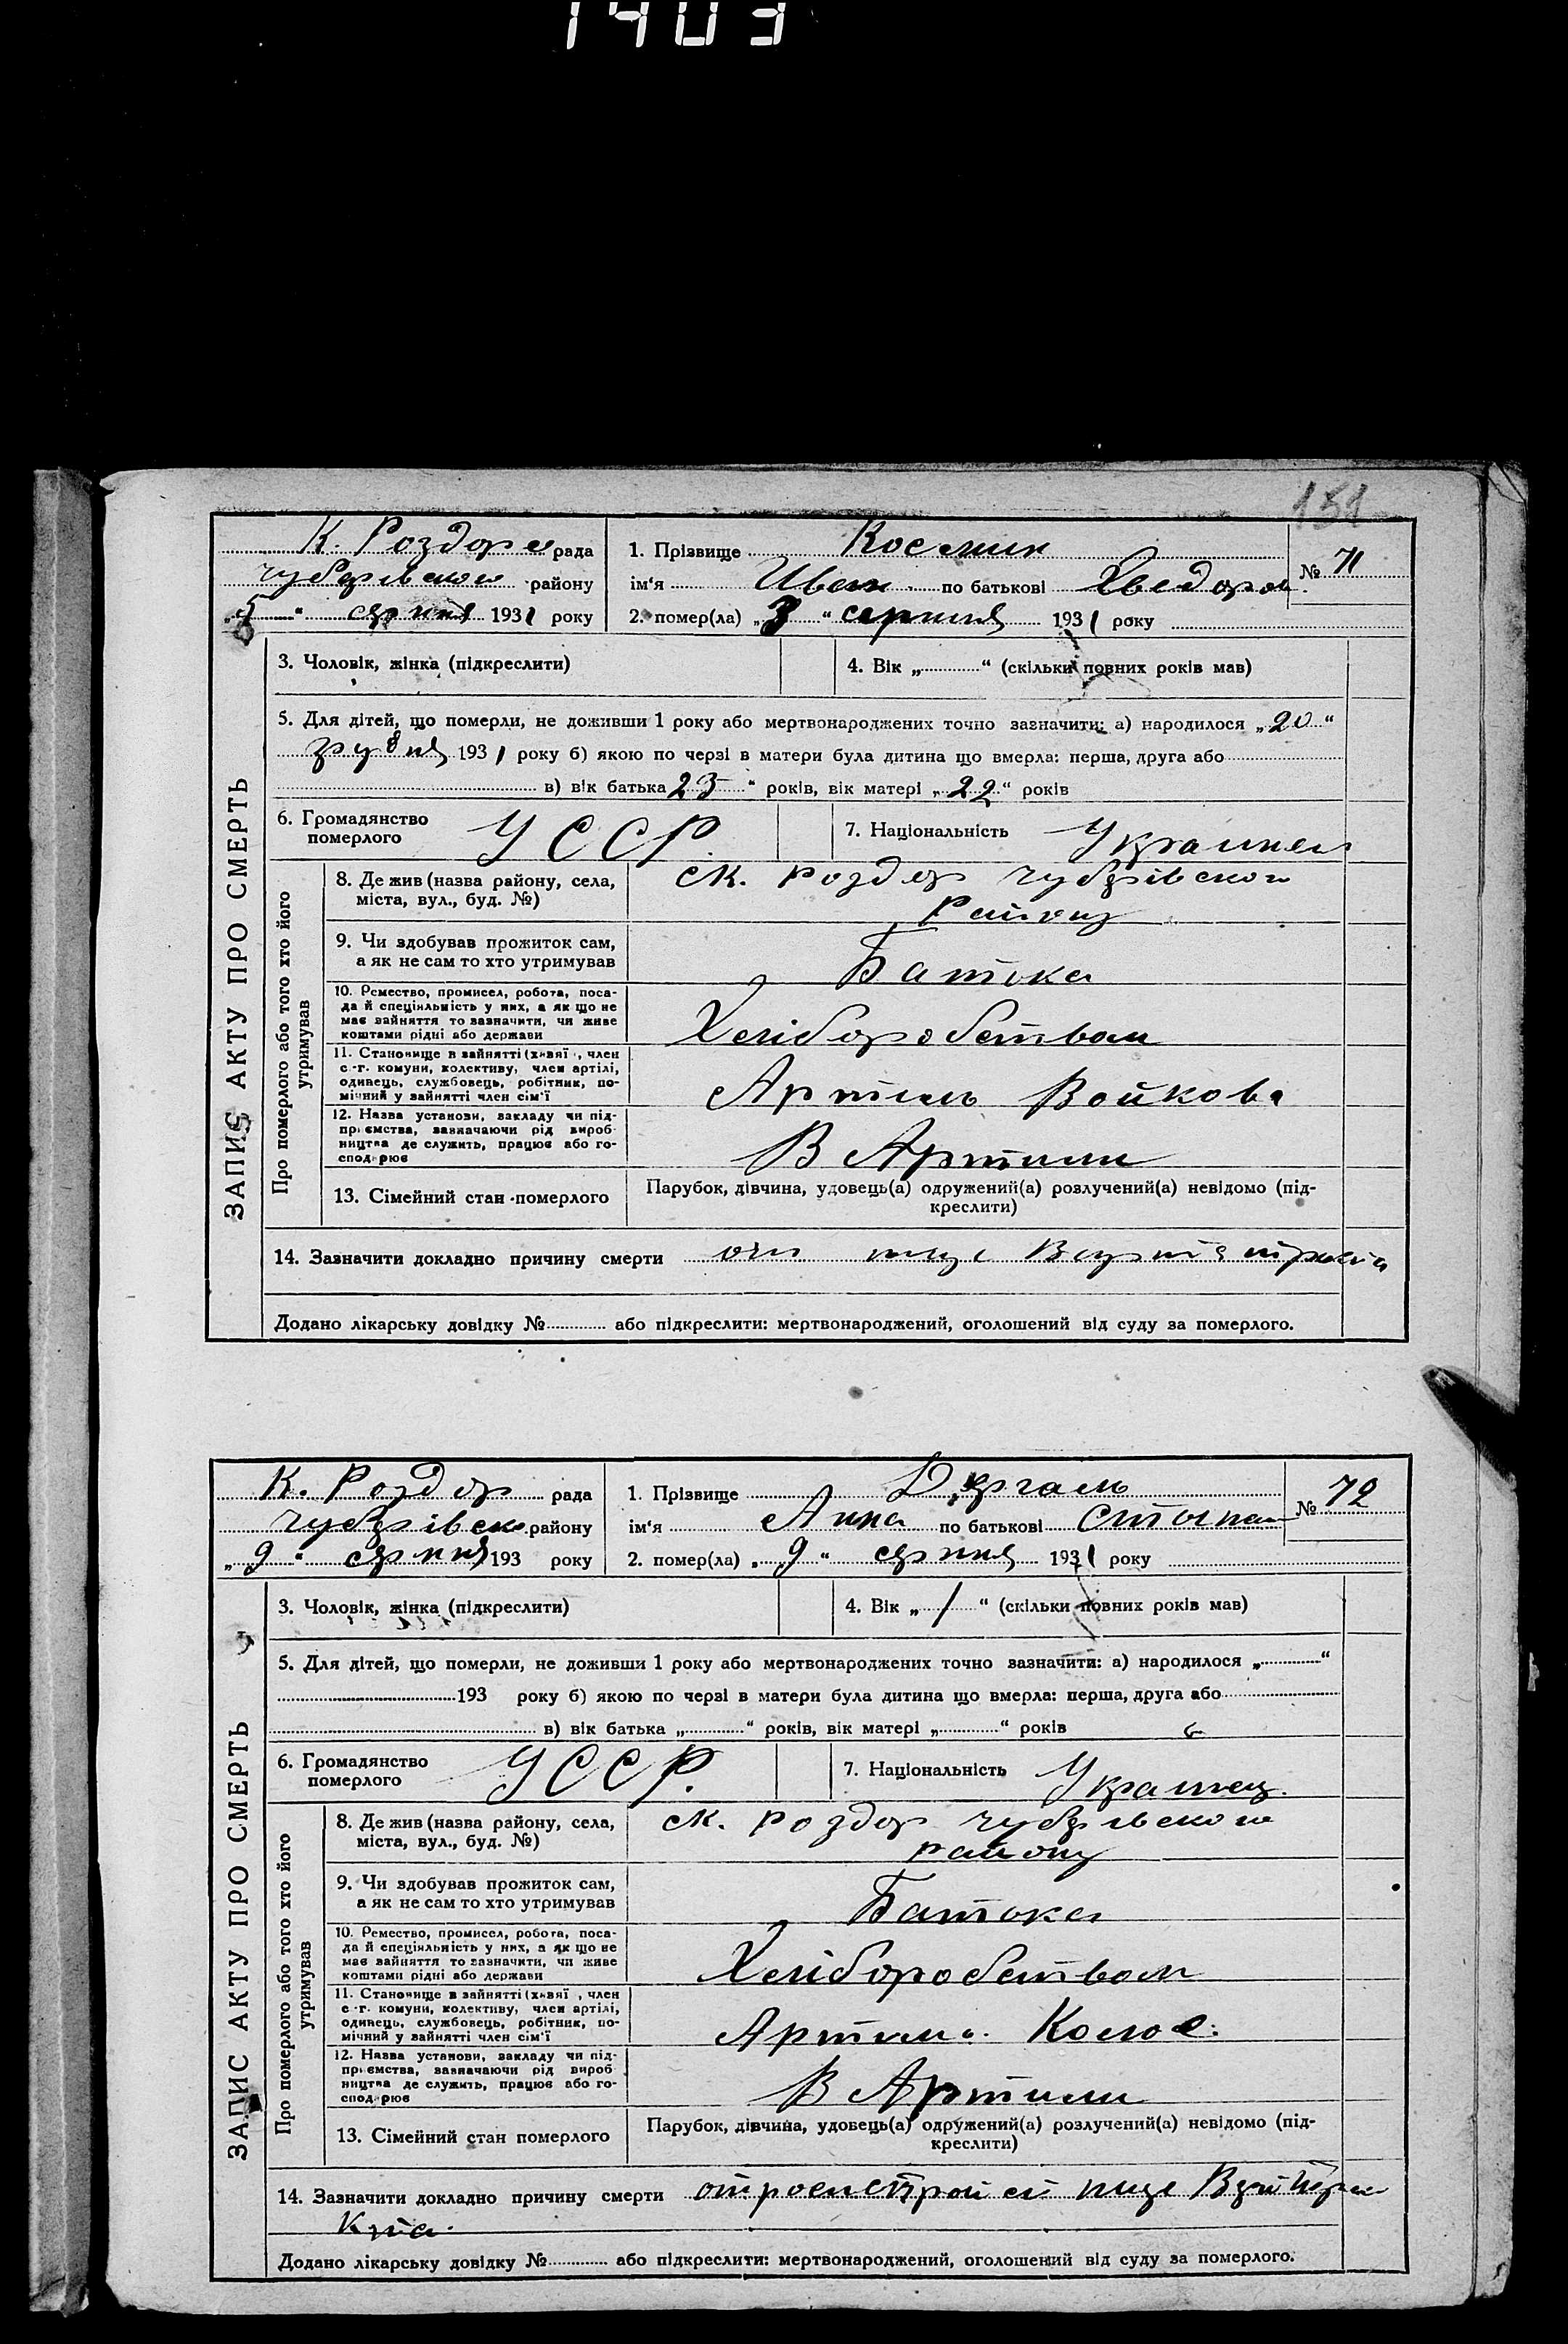 1403
151
К. Роздоре рада
чубарівского району
„5“ серпня 1931 року
1. Прізвище Космин
№ 71
ім‘я Иван по батькові Хведоров
2. помер(ла) „3“ серпня 1931 року
ЗАПИС АКТУ ПРО СМЕРТЬ
3. Чоловік, жінка (підкреслити)
4. Вік „ “ (скільки повних років мав)
5. Для дітей, що померли, не доживши 1 року або мертвонароджених точно зазначити: а) народилося „20“
грудня 1931 року б) якою по черзі в матери була дитина що вмерла: перша, друга або
в) вік батька 23 “ років, вік матері „22“ років
6. Громадянство
померлого
УССР
7. Національність Украинец
Про померлого або того хто його
утримував
8. Де жив (назва району, села,
міста, вул., буд. №)
ск. роздор чубарівского
Району
9. Чи здобував прожиток сам,
а як не сам то хто утримував
Батока
10. Ремество, промисел, робота, поса-
да й спеціяльність у них, а як що не
має зайняття то зазначити, чи живе
коштами рідні або держави
Хеліборобством
11. Становище в зайнятті (хазяї, член
с.-г. комуни, колективу, член артілі,
одинець, службовець, робітник, по-
мічний у зайнятті член сім‘ї
Артиль Войкова
12. Назва установи, закладу чи під-
приємства, зазначаючи рід вироб-
ництва де служить, працює або го-
сподарює
В Артили
13. Сімейний стан померлого
Парубок, дівчина, удовець(а) одружений(а) розлучений(а) невідомо (під-
креслити)
14. Зазначити докладно причину смерти
Додано лікарську довідку № або підкреслити: мертвонароджений, оголошений від суду за померлого.
К. Роздор рада
чубарівско району
„9“ серпня 193 року
1. Прізвище Дергаль
№ 72
ім‘я Анна по батькові Стыпан
2. помер(ла) „9“ серпня 1931 року
ЗАПИС АКТУ ПРО СМЕРТЬ
3. Чоловік, жінка (підкреслити)
4. Вік „1“ (скільки повних років мав)
5. Для дітей, що померли, не доживши 1 року або мертвонароджених точно зазначити: а) народилося „ “
193 року б) якою по черзі в матери була дитина що вмерла: перша, друга або
в) вік батька „ “ років, вік матері „ “ років
6. Громадянство
померлого
УССР.
7. Національність Украинец.
Про померлого або того хто його
утримував
8. Де жив (назва району, села,
міста, вул., буд. №)
ск. роздор чубарівского
району
9. Чи здобував прожиток сам,
а як не сам то хто утримував
Батока
10. Ремество, промисел, робота, поса-
да й спеціяльність у них, а як що не
має зайняття то зазначити, чи живе
коштами рідні або держави
Хеліборобством
11. Становище в зайнятті (хазяї, член
с.-г. комуни, колективу, член артілі,
одинець, службовець, робітник, по-
мічний у зайнятті член сім‘ї
12. Назва установи, закладу чи під-
приємства, зазначаючи рід вироб-
ництва де служить, працює або го-
сподарює
В Артили
13. Сімейний стан померлого
Парубок, дівчина, удовець(а) одружений(а) розлучений(а) невідомо (під-
креслити)
14. Зазначити докладно причину смерти
Додано лікарську довідку № або підкреслити: мертвонароджений, оголошений від суду за померлого.